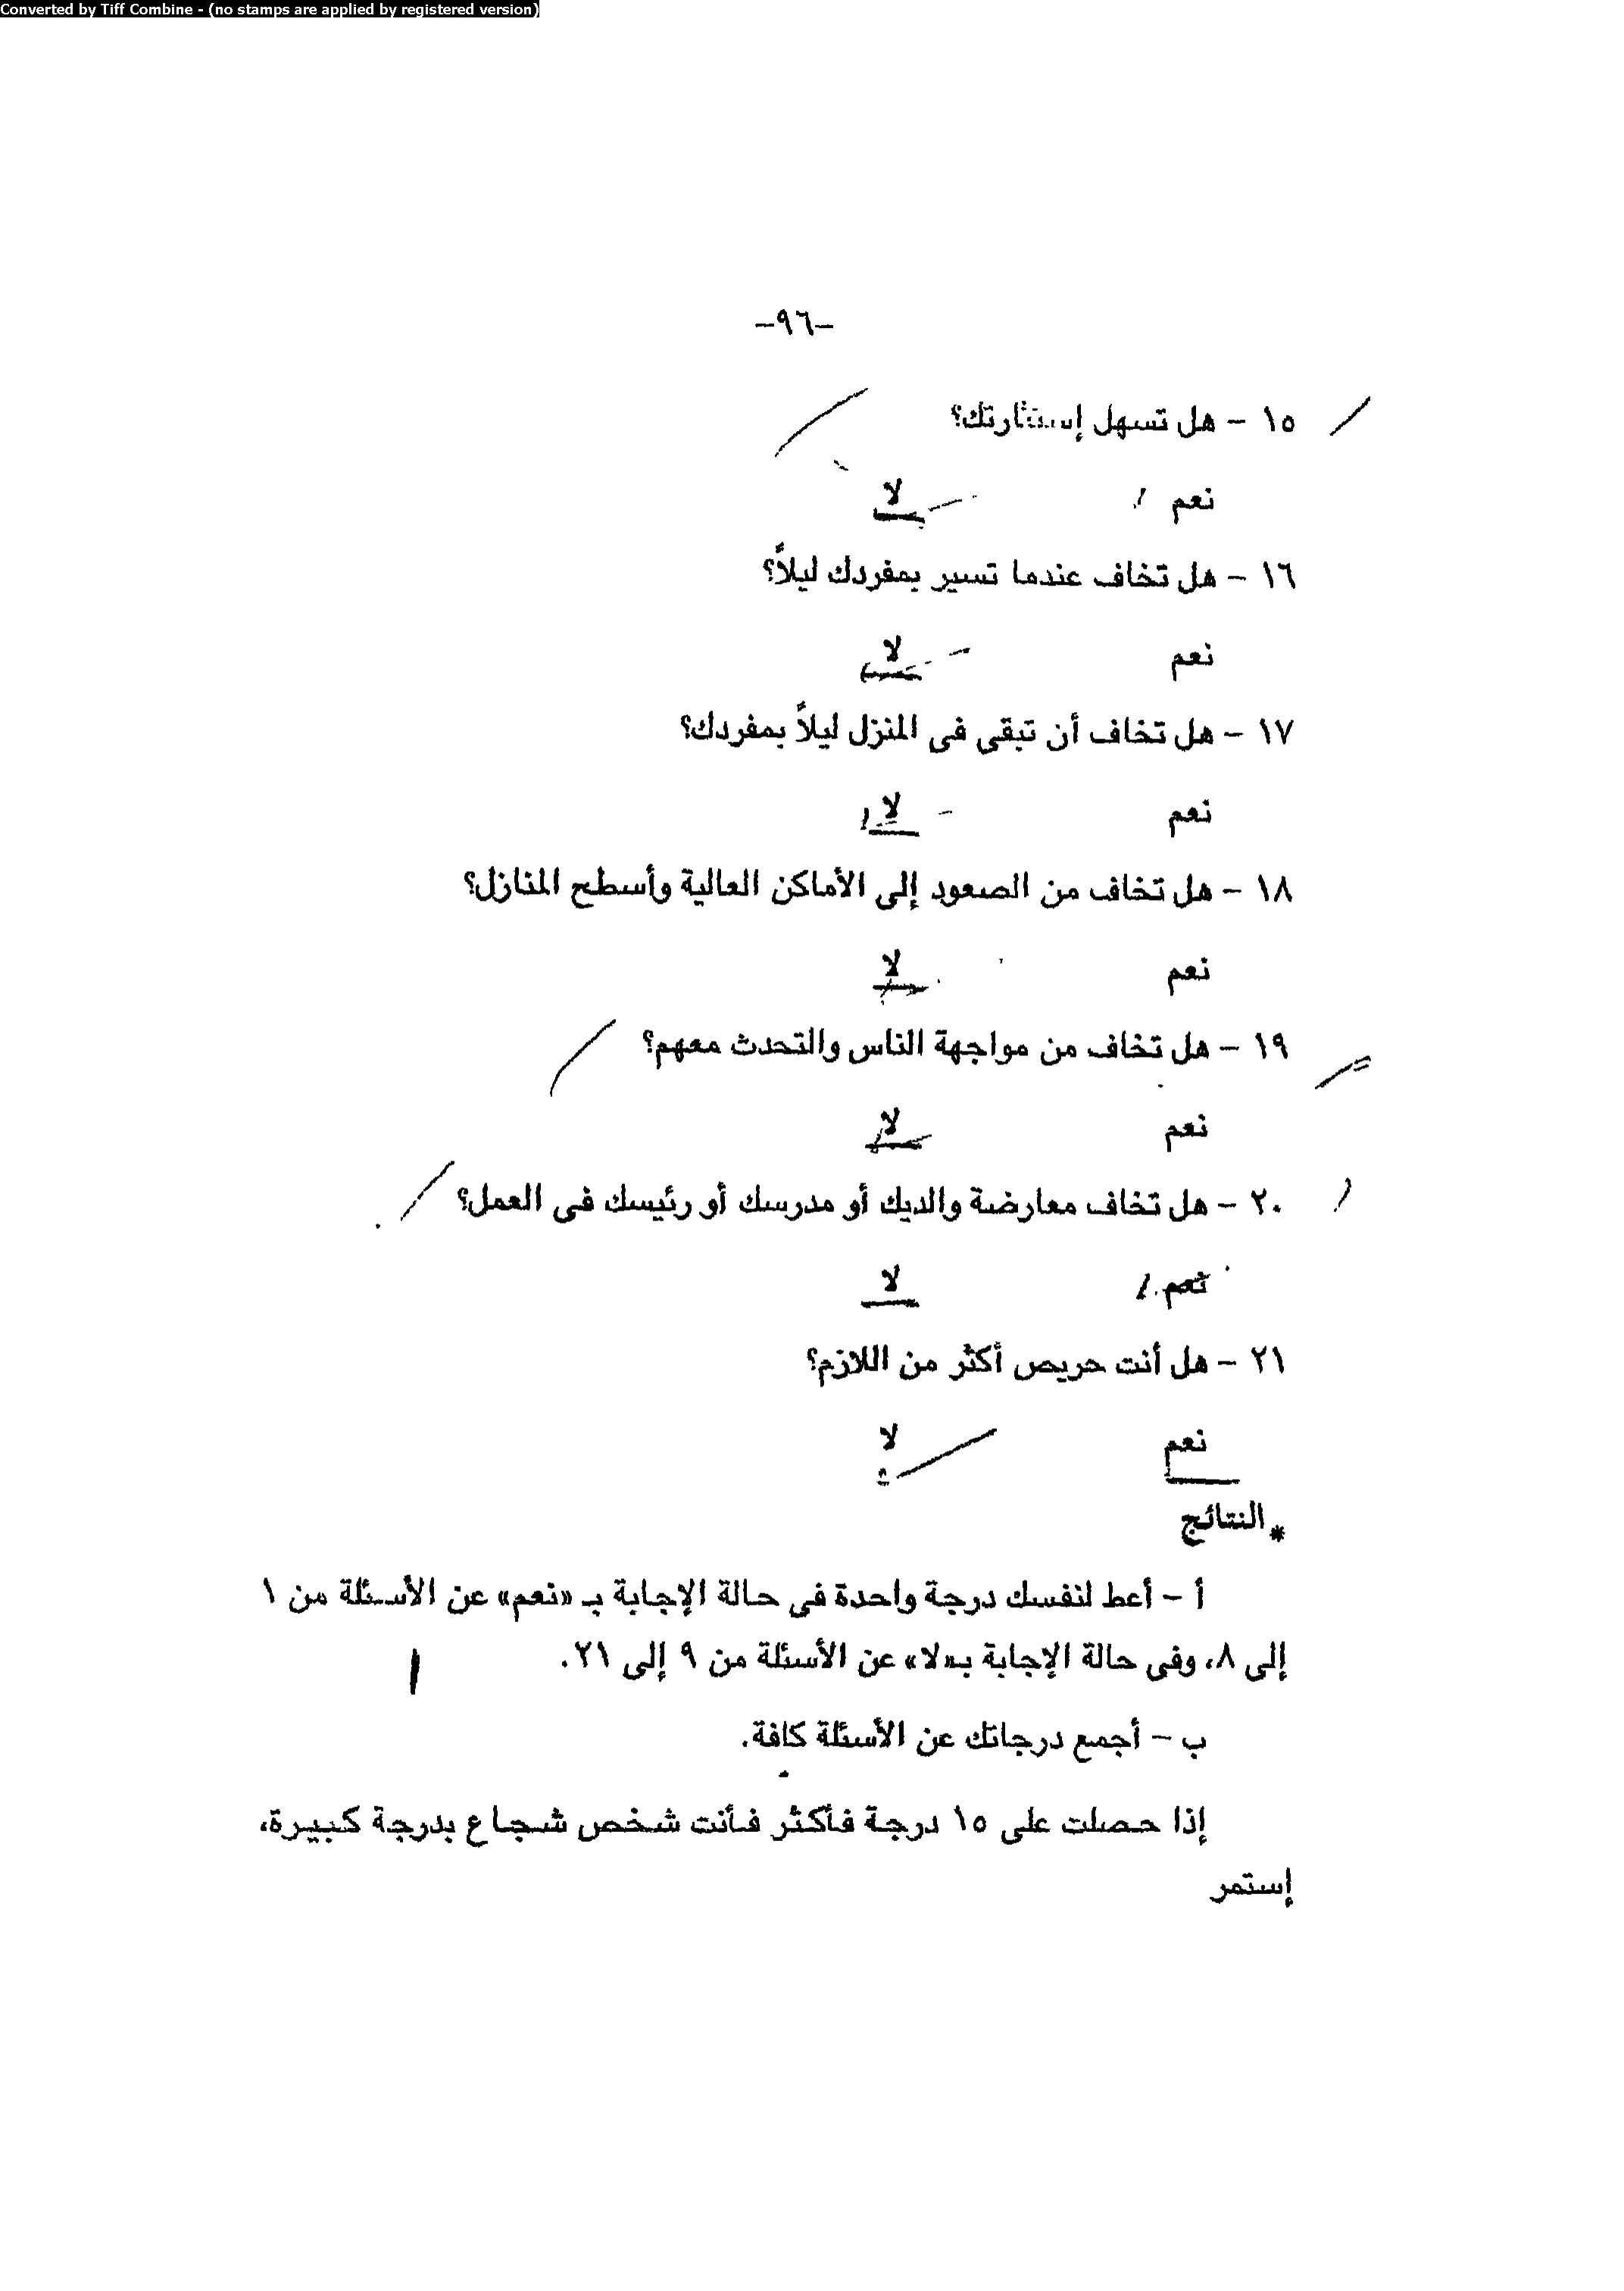 Converted by Tiff Combine - (no stamps are applied by registered version)
-٩٦-
١٥ - هل تسهل إستثارتك؟
نعم لا
١٦ - هل تخاف عندما تسير بمفردك ليلاً؟
نعم لا
١٧ - هل تخاف أن تبقى فى المنزل ليلاً بمفردك؟
نعم لا
١٨ - هل تخاف من الصعود إلى الأماكن العالية وأسطح المنازل؟
نعم لا
١٩ - هل تخاف من مواجهة الناس والتحدث معهم؟
نعم لا
٢٠ - هل تخاف معارضة والديك أو مدرسك أو رئيسك فى العمل؟
نعم لا
٢١ - هل أنت حريص أكثر من اللازم؟
نعم لا
* النتائج
أ - أعط لنفسك درجة واحدة فى حالة الإجابة بـ «نعم» عن الأسئلة من ١
إلى ٨، وفى حالة الإجابة بـ«لا» عن الأسئلة من ٩ إلى ٢١.
ب - أجمع درجاتك عن الأسئلة كافة.
إذا حصلت على ١٥ درجة فأكثر فأنت شخص شجاع بدرجة كبيرة،
إستمر